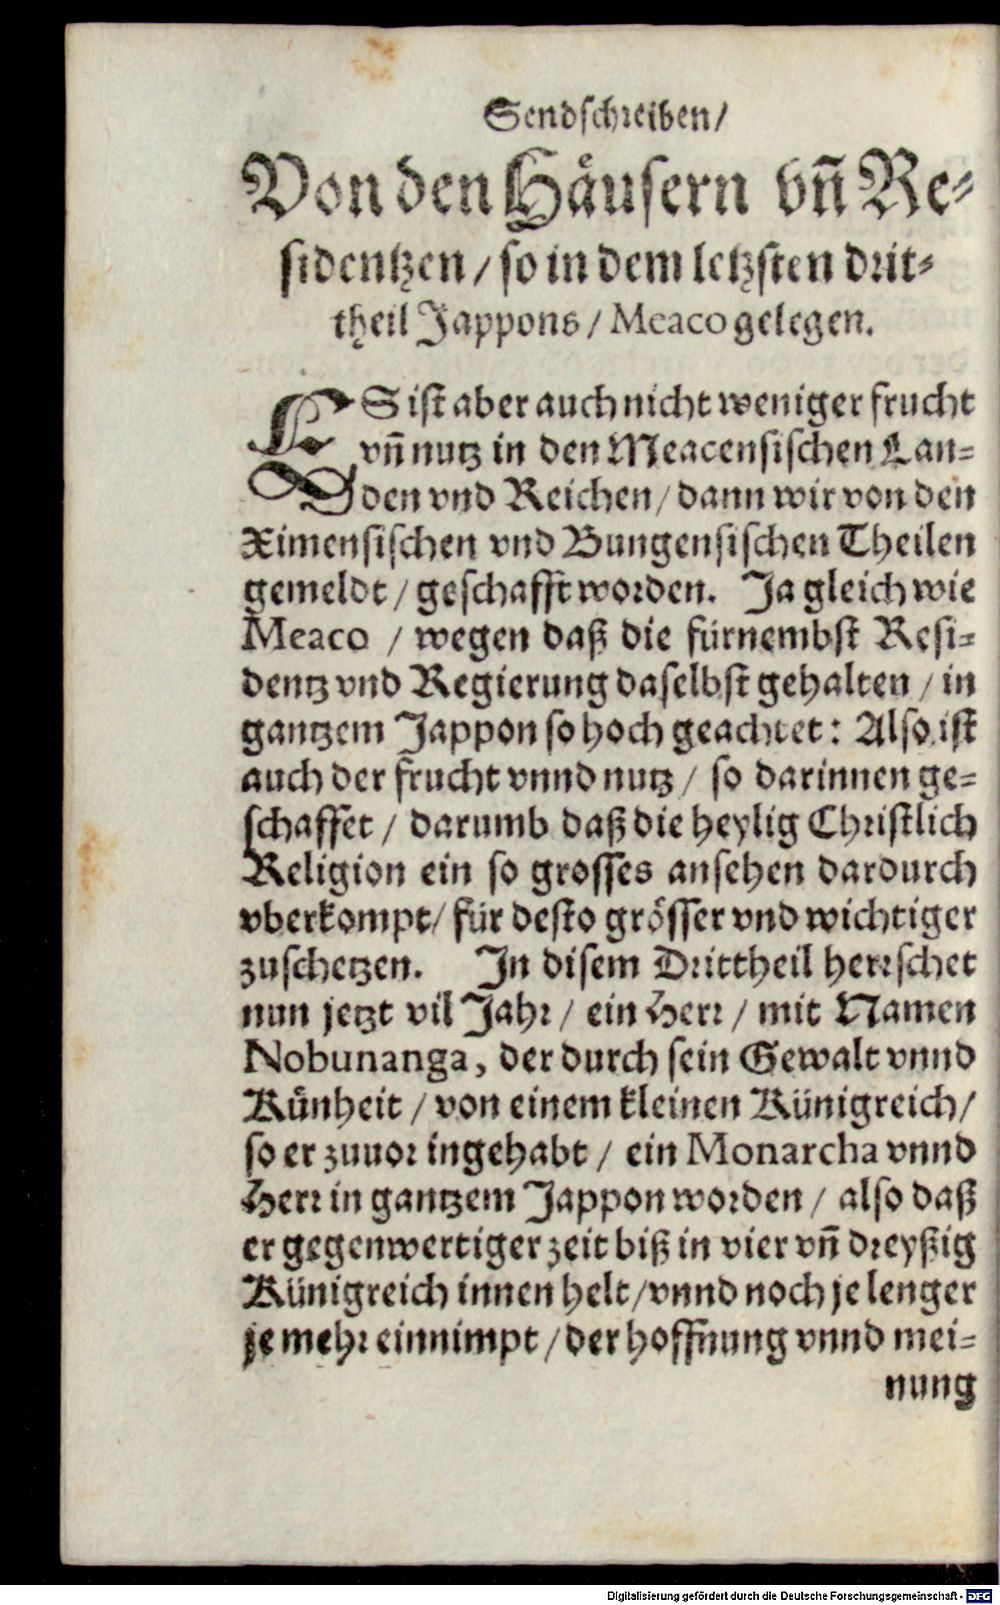 Sendschreiben/
Von den Häusern vñ Re-
sidentzen/ so in dem letzsten drit-
theil Jappons/ Meaco gelegen.
ES ist aber auch nicht weniger frucht
vñ nutz in den Meacensischen Lan-
den vnd Reichen/ dann wir von den
Ximensischen vnd Bungensischen Theilen
gemeldt/ geschafft worden. Ja gleich wie
Meaco / wegen daß die fürnembst Resi-
dentz vnd Regierung daselbst gehalten/ in
gantzem Jappon so hoch geachtet: Also ist
auch der frucht vnnd nutz/ so darinnen ge-
schaffet/ darumb daß die heylig Christlich
Religion ein so grosses ansehen dardurch
vberkompt/ für desto grösser vnd wichtiger
zuschetzen. In disem Drittheil herrschet
nun jetzt vil Jahr/ ein Herr/ mit Namen
Nobunanga, der durch sein Gewalt vnnd
Künheit/ von einem kleinen Künigreich/
so er zuuor ingehabt/ ein Monarcha vnnd
Herr in gantzem Jappon worden/ also daß
er gegenwertiger zeit biß in vier vñ dreyßig
Künigreich innen helt/ vnnd noch je lenger
je mehr einnimpt/ der hoffnung vnnd mei-
nung
Digitalisierung gefördert durch die Deutsche Forschungsgemeinschaft - DFG